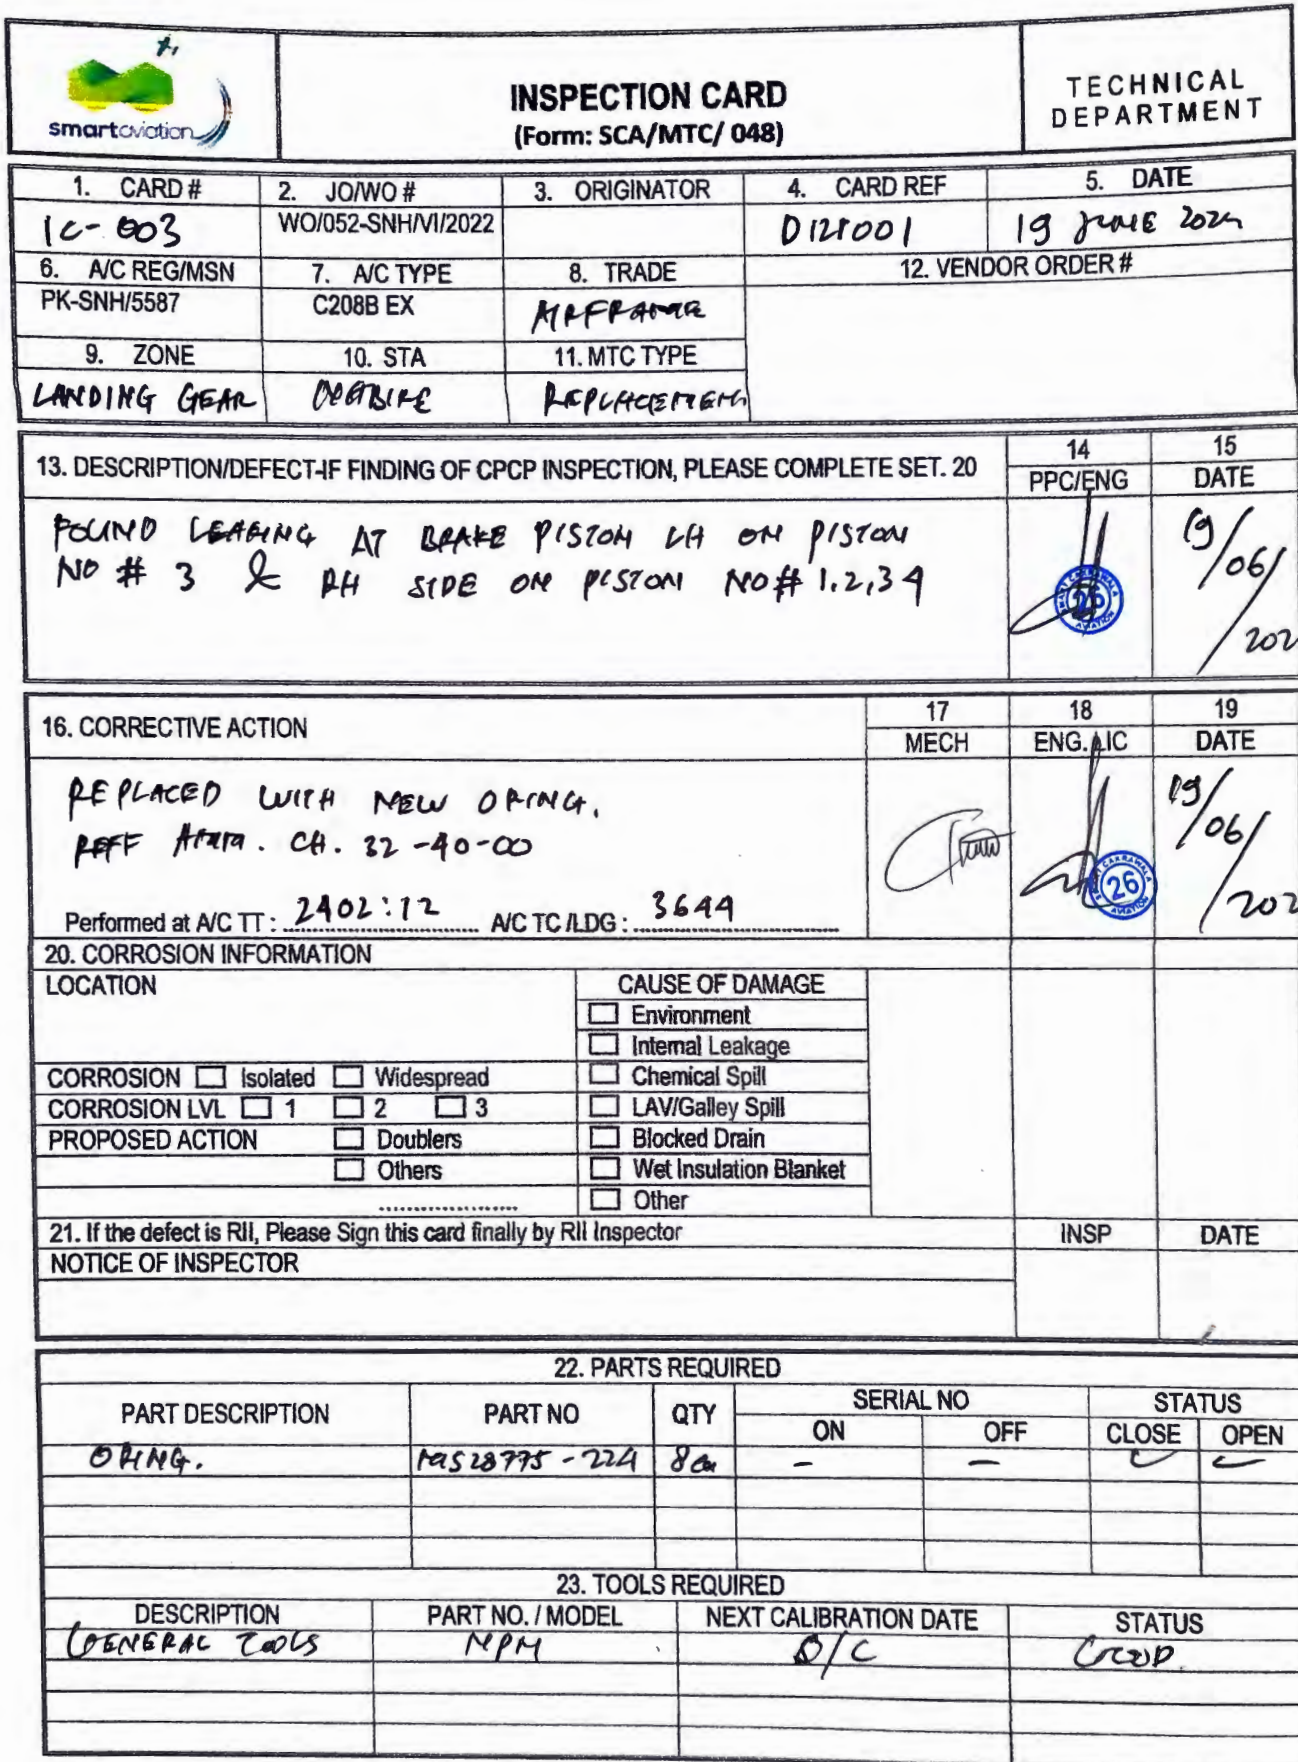 smartaviation
INSPECTION CARD
(Form: SCA/MTC/ 048)
TECHNICAL
DEPARTMENT
1. CARD # 2. JO/WO # 3. ORIGINATOR 4. CARD REF 5. DATE
IC-003 WO/052-SNH/VI/2022 19 JUNE
6. A/C REG/MSN 7. A/C TYPE 8. TRADE 12. VENDOR ORDER #
PK-SNH/5587 C208B EX AIRFRAME
9. ZONE 10. STA 11. MTC TYPE
LANDING GEAR REPLACEMENT
13. DESCRIPTION/DEFECT-IF FINDING OF CPCP INSPECTION, PLEASE COMPLETE SET. 20 14 15
PPC/ENG DATE
FOUND LEAKING AT BRAKE PISTON LH ON PISTON
NO # 3 & RH SIDE ON PISTON NO# 1,2,3 4
19/06/202
26
16. CORRECTIVE ACTION 17 18 19
MECH ENG. LIC DATE
REPLACED WITH NEW ORING.
REFF AMM. CH. 32-40-00
19/06/202
26
Performed at A/C TT : 2402:12 A/C TC /LDG : 3644
20. CORROSION INFORMATION
LOCATION CAUSE OF DAMAGE
Environment
Internal Leakage
CORROSION Isolated Widespread Chemical Spill
CORROSION LVL 1 2 3 LAV/Galley Spill
PROPOSED ACTION Doublers Blocked Drain
Others Wet Insulation Blanket
Other
21. If the defect is RII, Please Sign this card finally by RII Inspector INSP DATE
NOTICE OF INSPECTOR
22. PARTS REQUIRED
PART DESCRIPTION PART NO QTY SERIAL NO STATUS
ON OFF CLOSE OPEN
ORING. MS28775-224 8 - -
23. TOOLS REQUIRED
DESCRIPTION PART NO. / MODEL NEXT CALIBRATION DATE STATUS
GENERAL TOOLS GOOD.